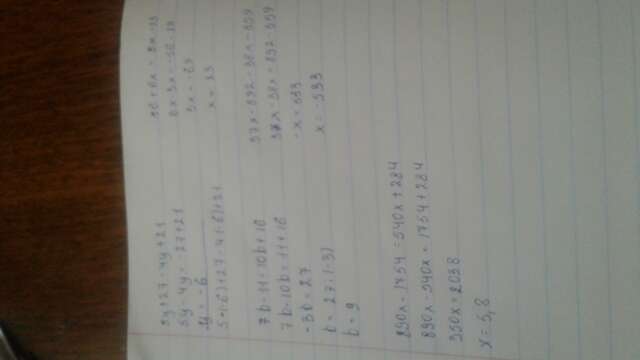 5y+27=4y+21
5y-4y=-27+21
y=-6
5·(-6)+27=4·(-6)+21
7b-11=10b+16
7b-10b=11+16
-3b=27
b=27:(-3)
b=9
890x-1754=540x+284
890x-540x=1754+284
350x=2038
x=5,8
x=23
37x-892=38x-559
37x-38x=892-559
-x=333
x=-533